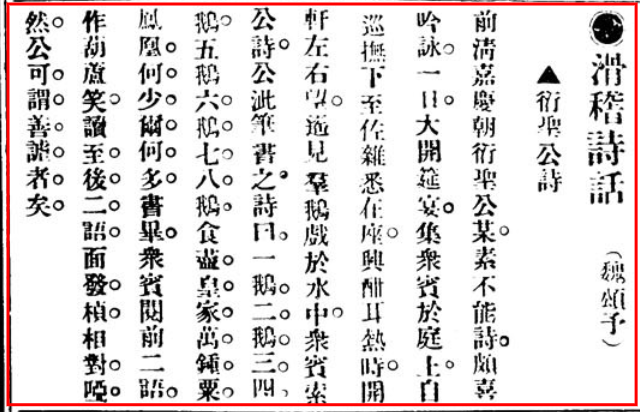 ●滑稽詩話 (魏頌予)
▲衍聖公詩
前淸嘉慶朝衍聖公某素不能詩。頗喜
吟詠。一日大開筵宴。集衆賓於庭上。自
巡撫下至佐雜悉在座。興酣耳熱時。開
軒左右望。遙見羣鵝戲於水中。衆賓索
公詩。公泚筆書之。詩曰。一鵝。二鵝。三四、
鵝。五鵝。六鵝。七八鵝。食盡皇家萬鍾粟。
鳳凰。何少爾何多。書畢。衆賓閱前二語。
作葫蘆笑。讀至後二語。面發楨。相對啞。
然。公可謂善謔者矣。